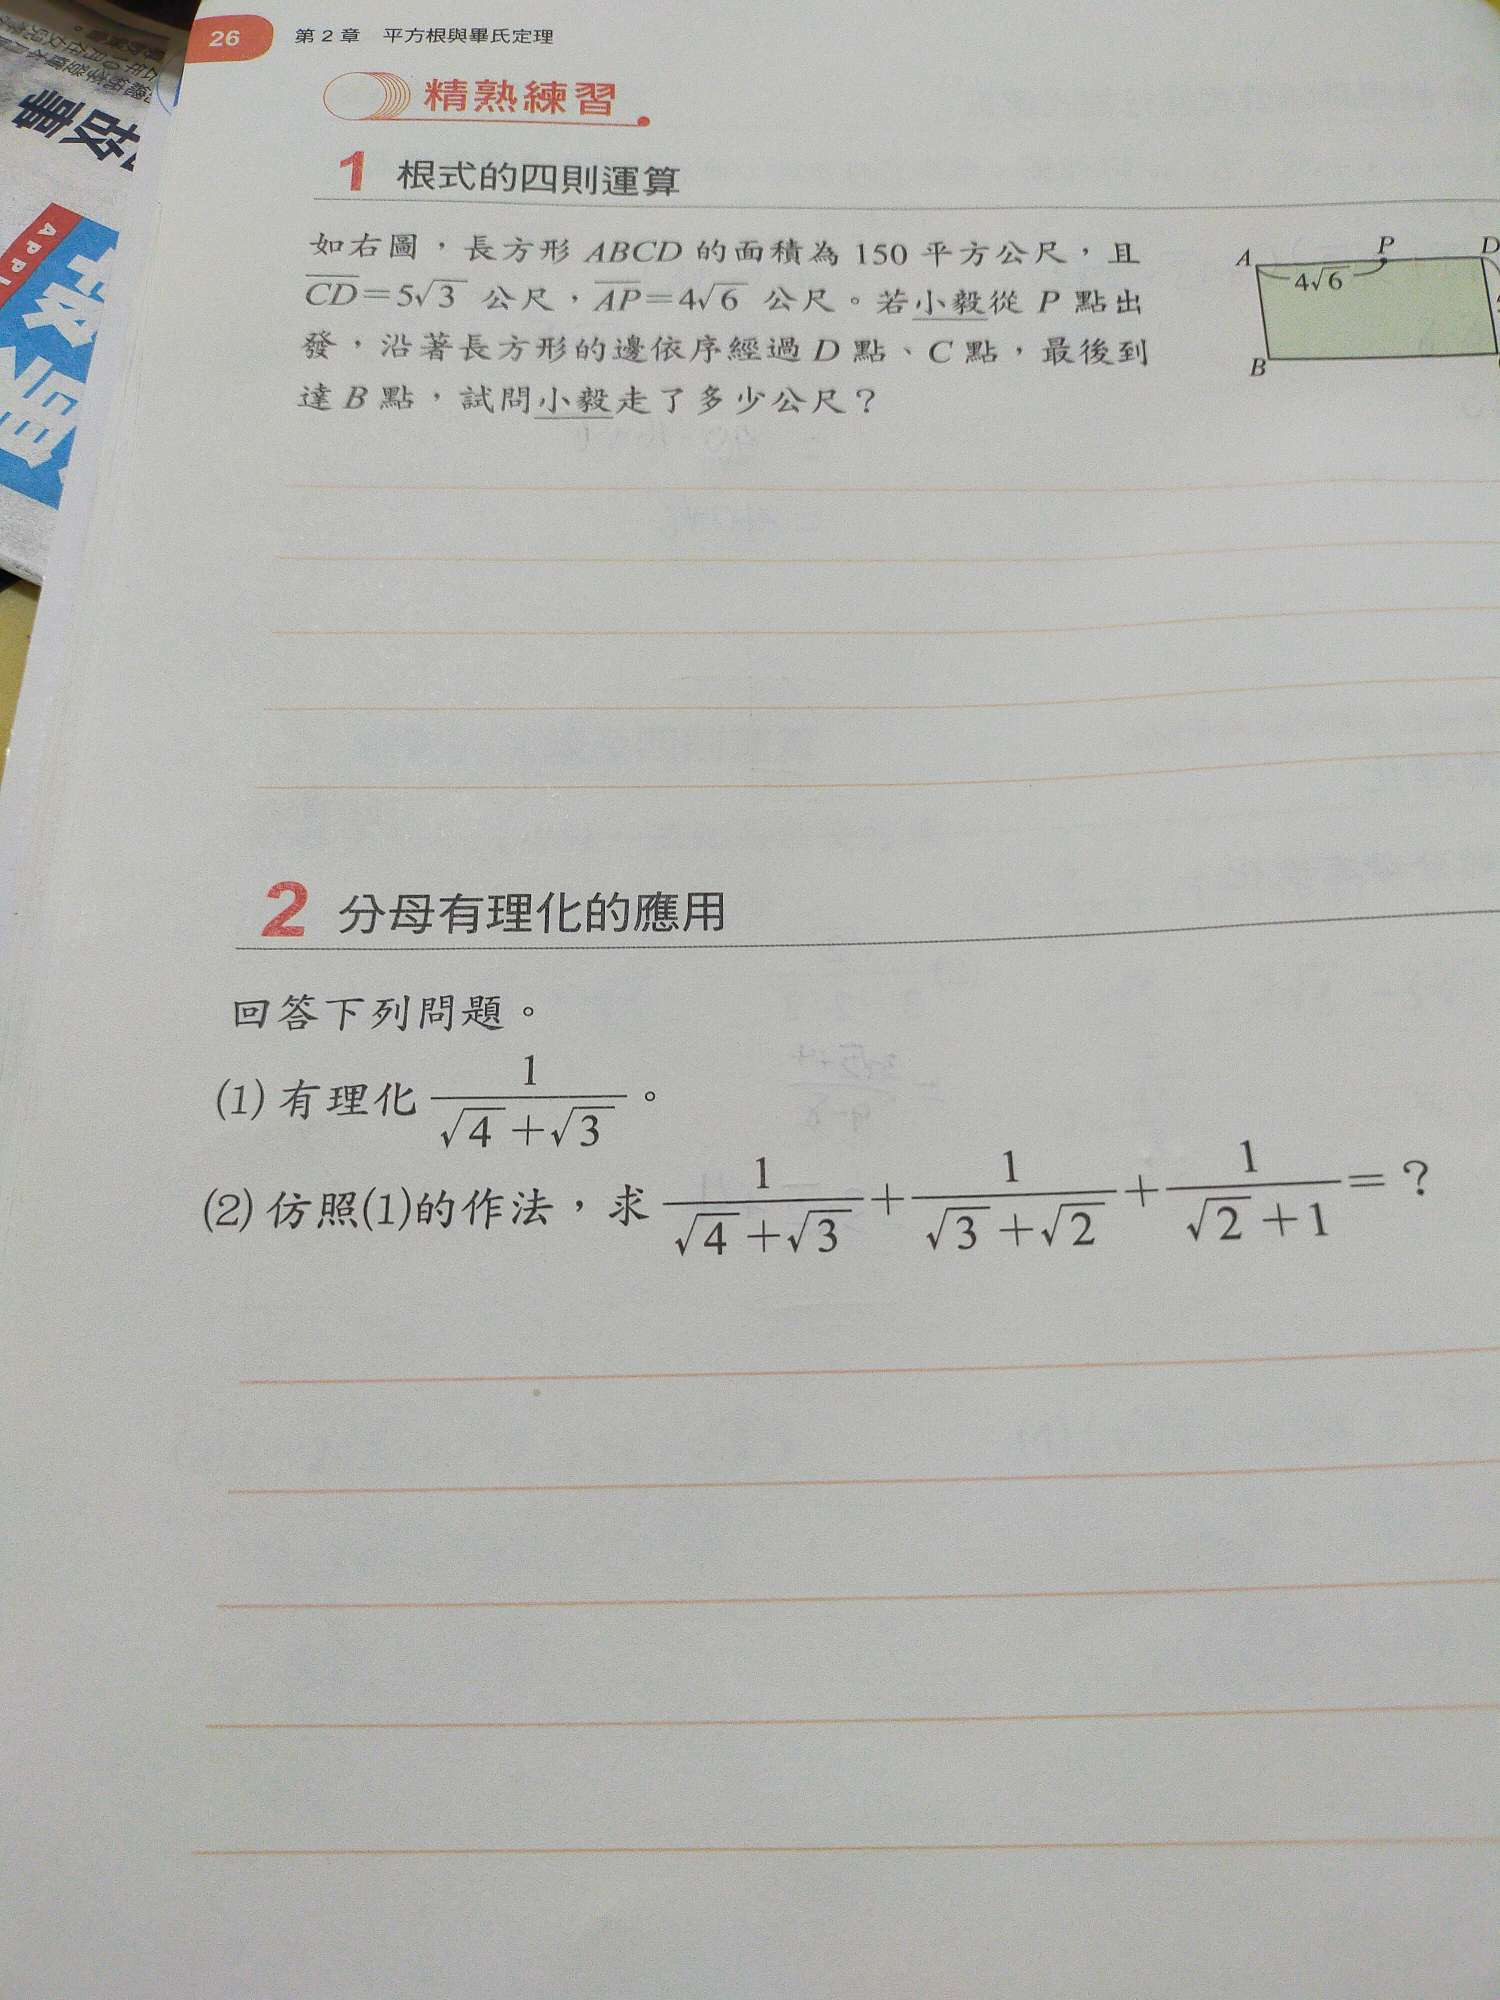 26 第 2 章 平方根與畢氏定理
精熟練習
1 根式的四則運算
如右圖，長方形 ABCD 的面積為 150 平方公尺，且
CD=5√3 公尺，AP=4√6 公尺。若小毅從 P 點出
發，沿著長方形的邊依序經過 D 點、C 點，最後到
達 B 點，試問小毅走了多少公尺？
A P D
4√6
B
2 分母有理化的應用
回答下列問題。
(1) 有理化 1/(√4+√3)。
(2) 仿照(1)的作法，求 1/(√4+√3)+1/(√3+√2)+1/(√2+1)=？
故事
APP